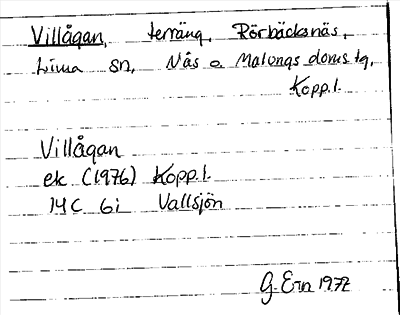 Villågan, terräng, Rörbäcksnäs,
Lima sn, Nås o Malungs doms tg,
Kopp.l.
Villågan
ek (1976) Kopp.l.
14C 6i Vallsjön
G. Ern 1977